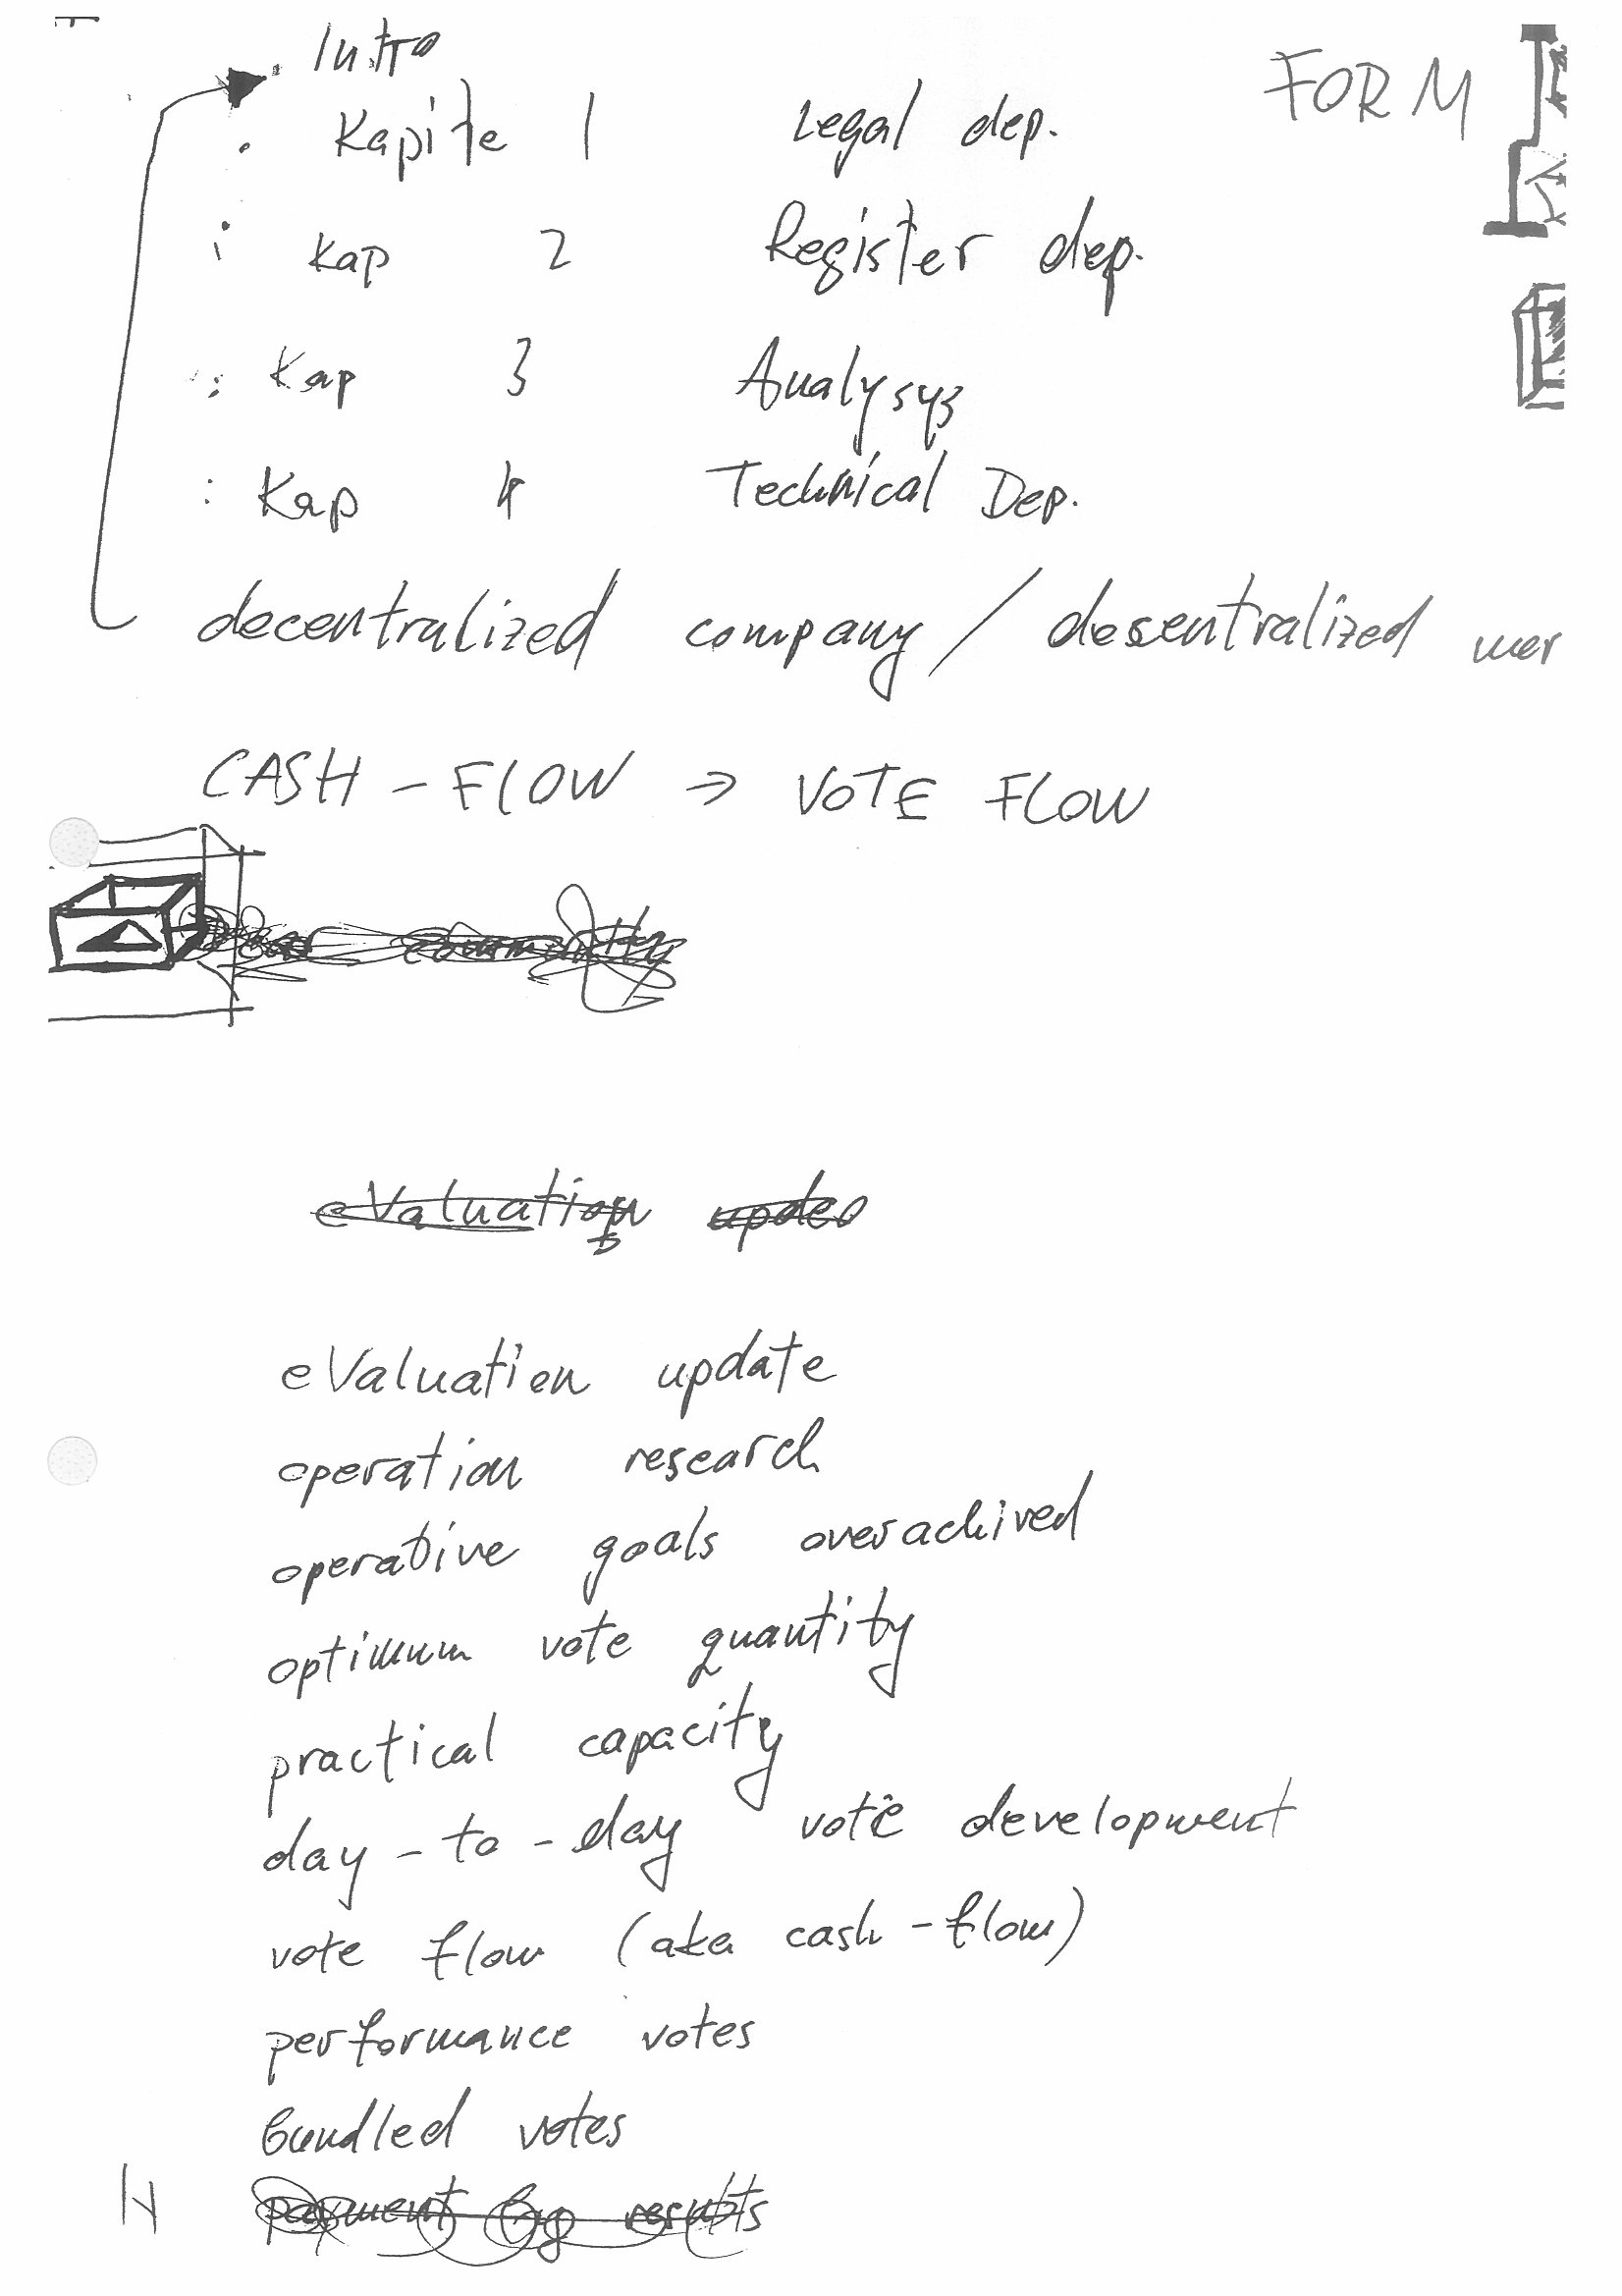 Intro
FORM
Kapitel 1 Legal dep.
Kap 2 Register dep.
Kap 3 Analysys
Kap 4 Technical Dep.
decentralized company / desentralized
CASH - FLOW → VOTE FLOW
eValuation
eValuation update
operation research
operative goals overachived
optimum vote quantity
practical capacity
day - to - day vote development
vote flow (aka cash - flow)
performance votes
bundled votes
payment by results